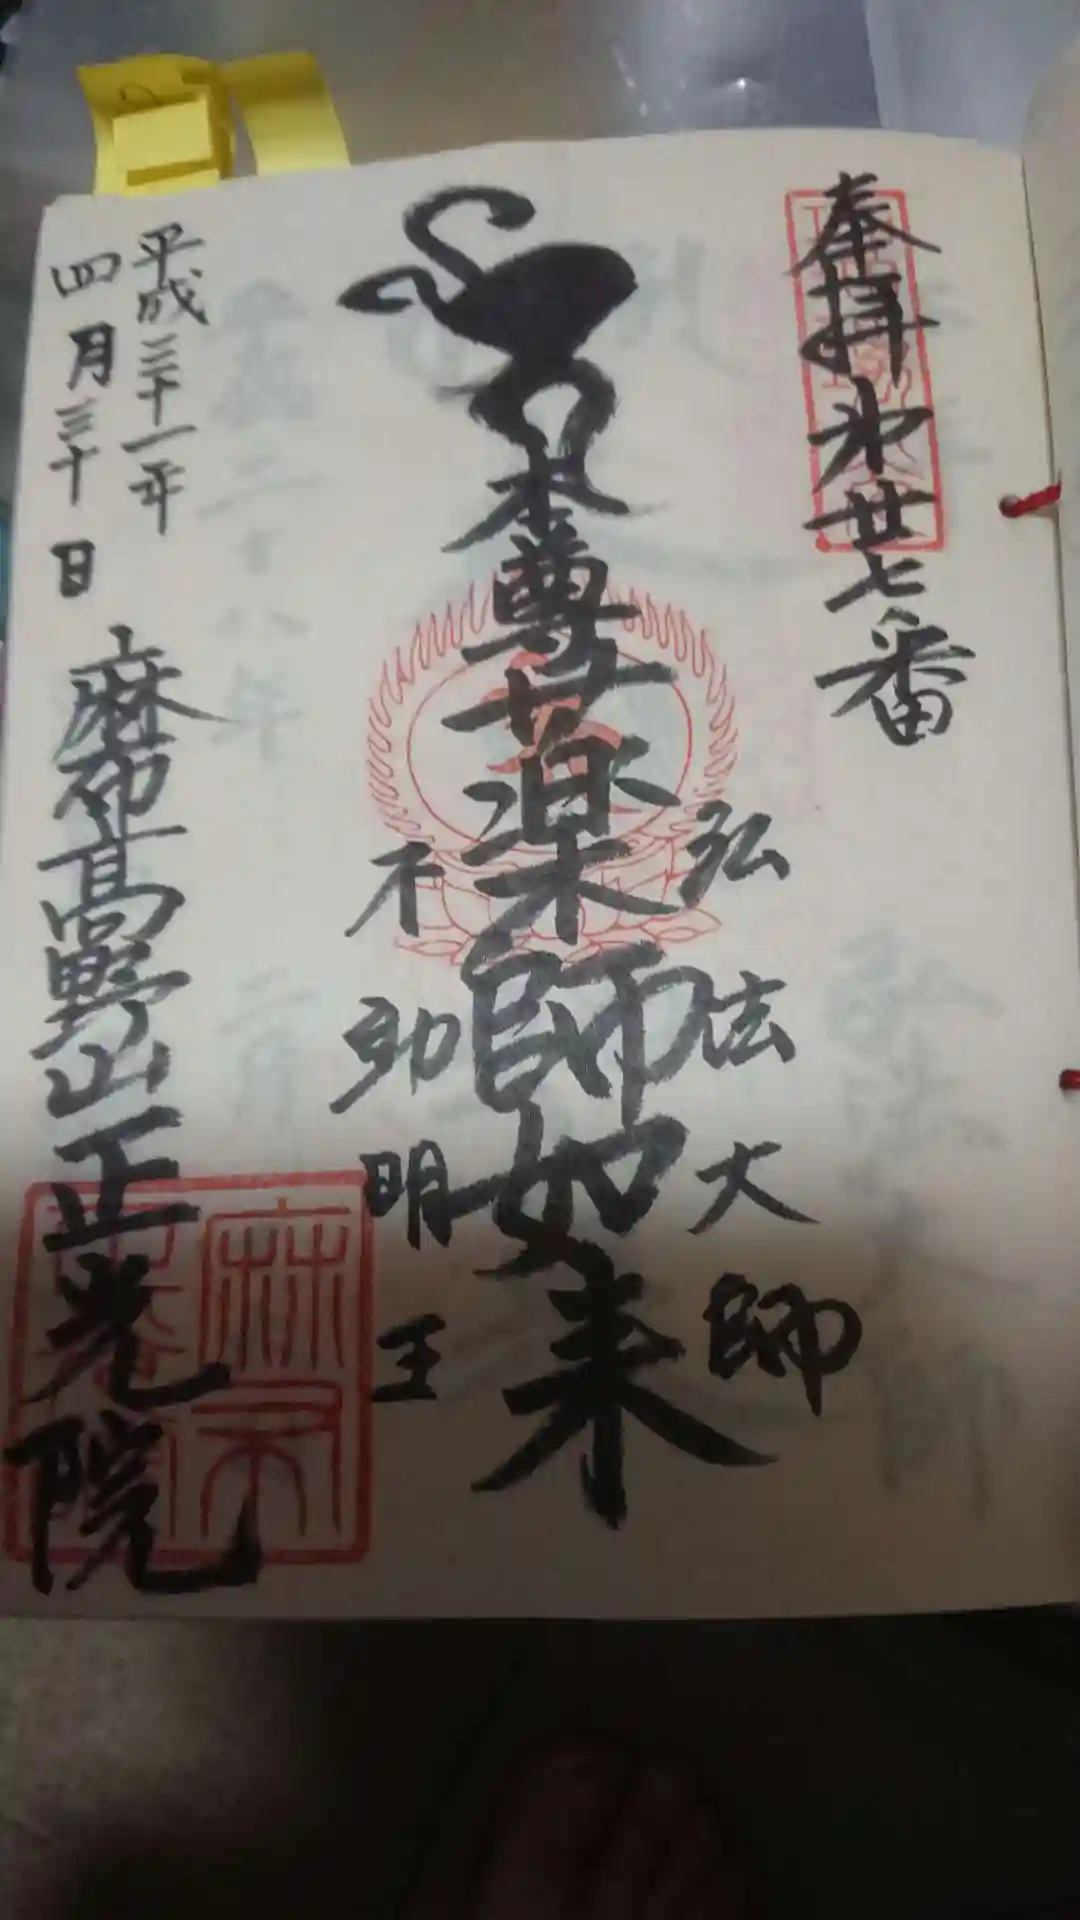 奉拝 第廿七番
弘法大師
本尊薬師如来
不動明王
平成三十一年
四月三十日
麻布高野山正光院